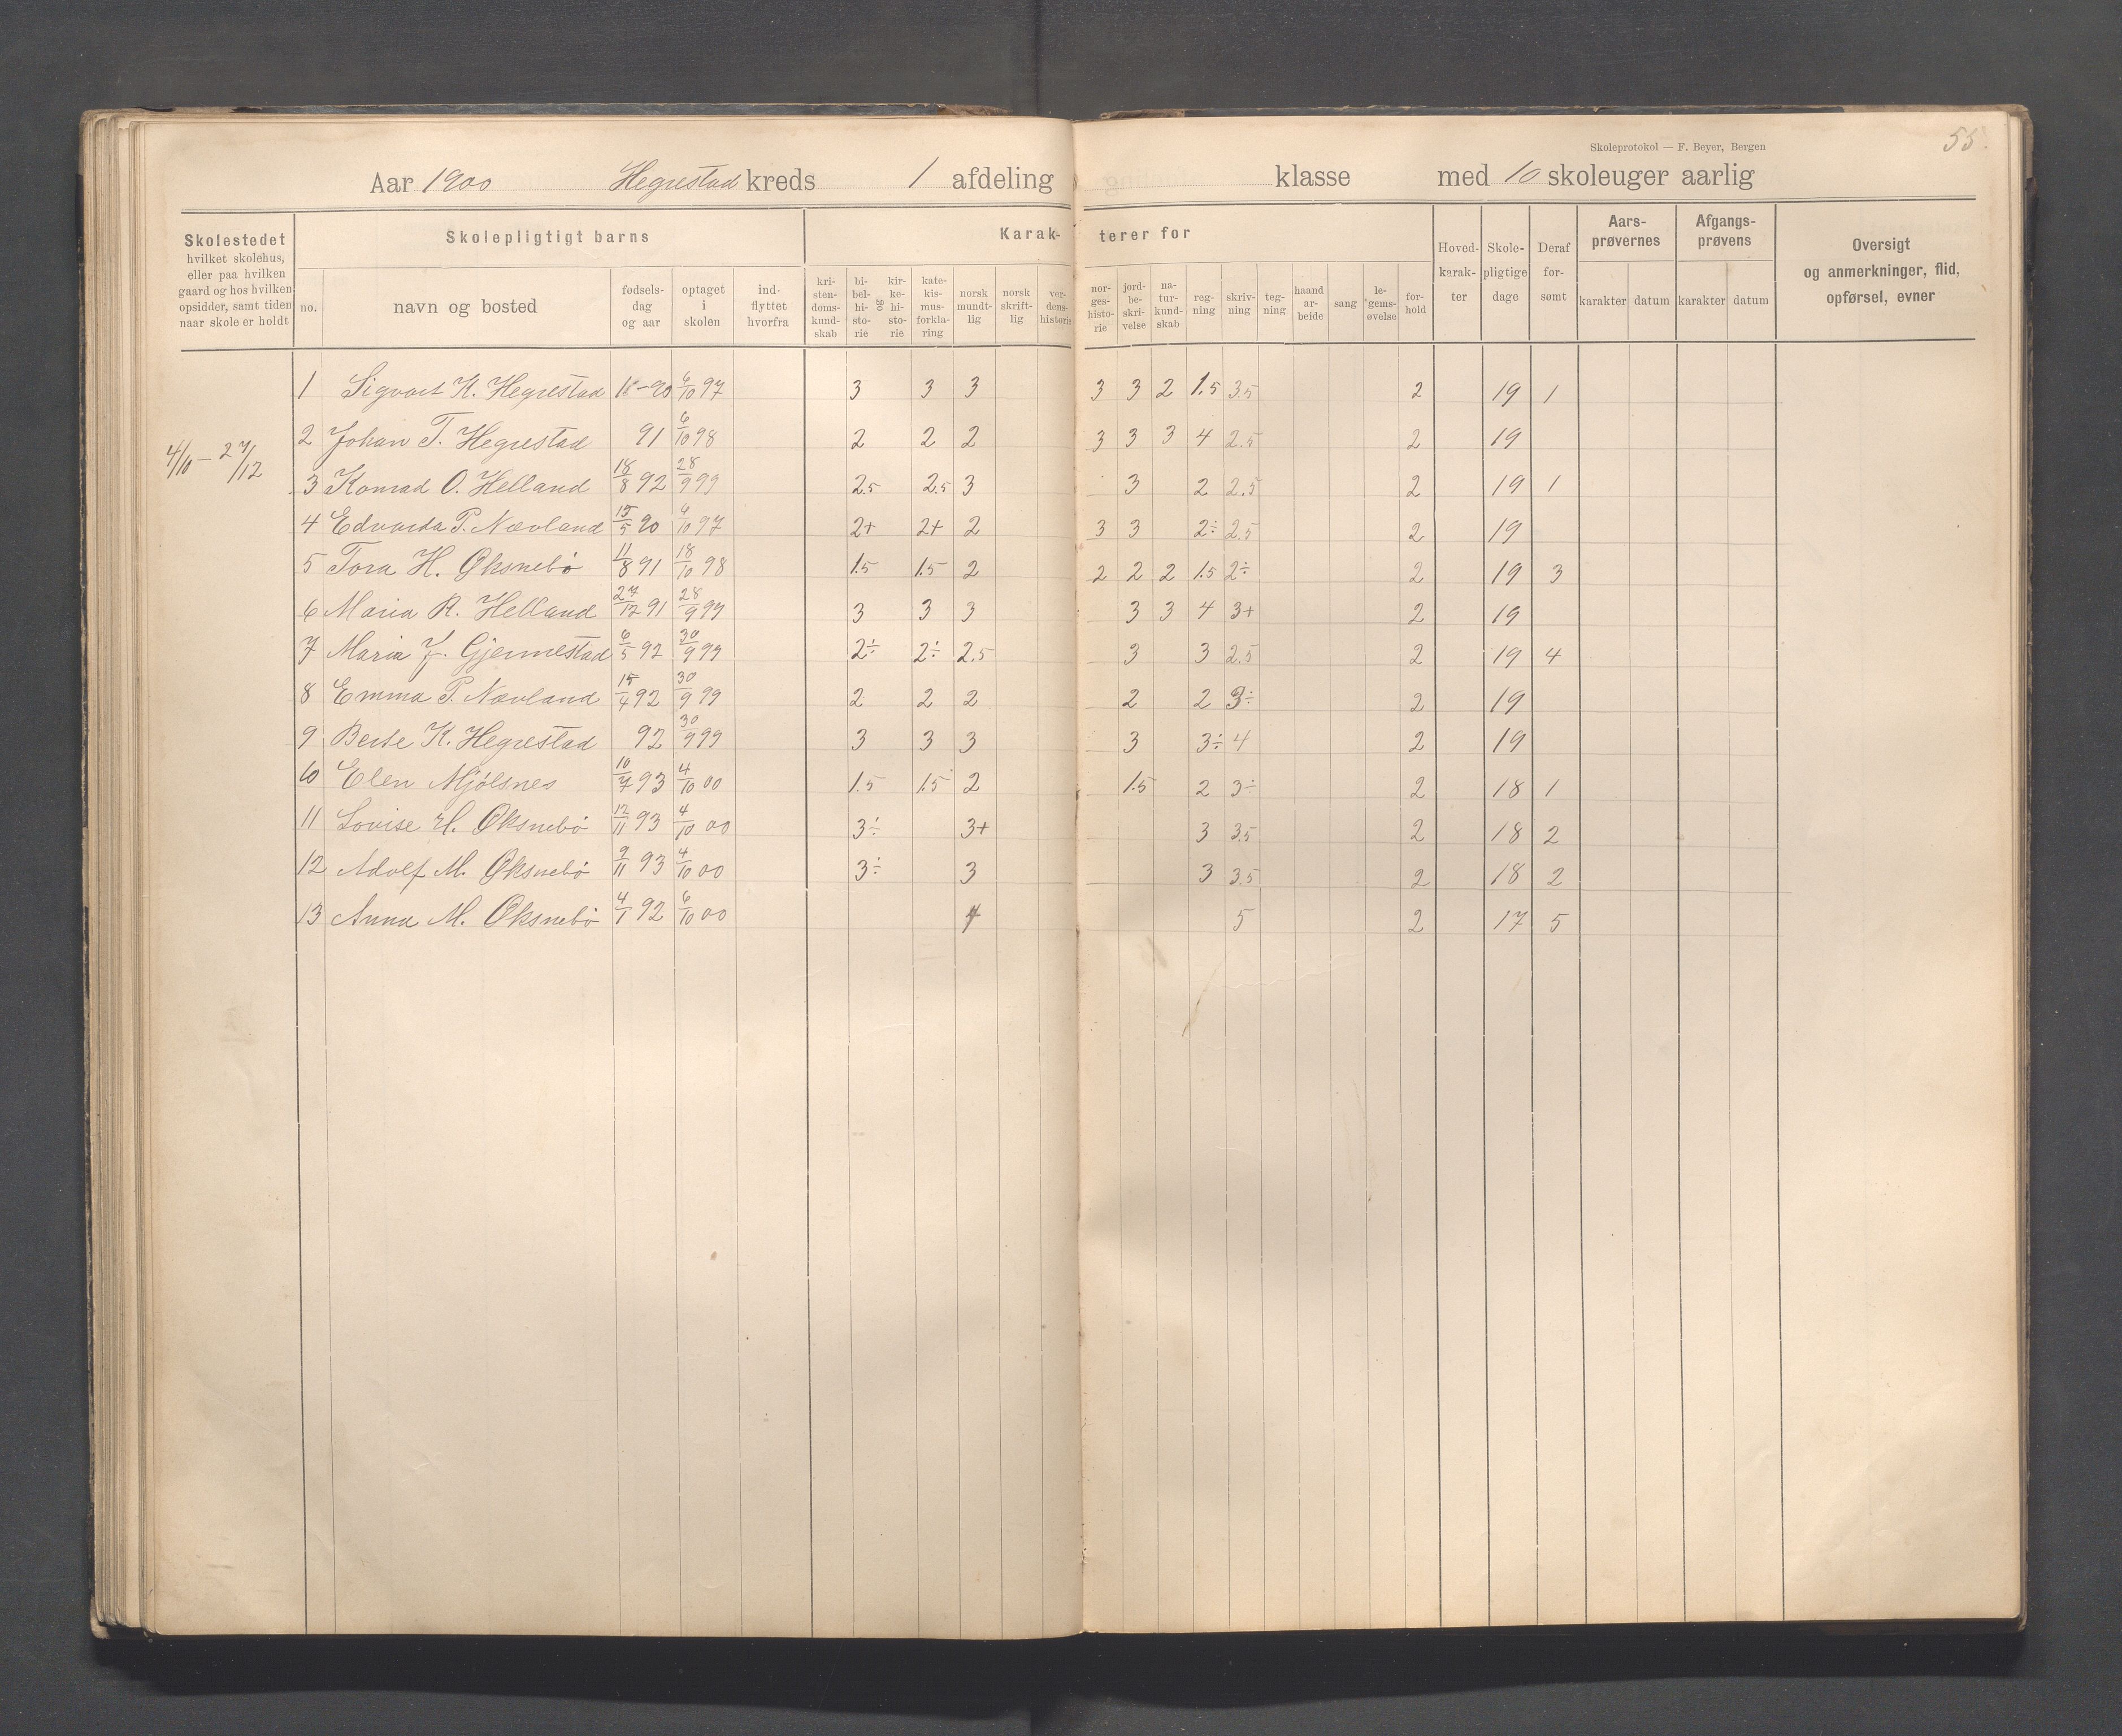 55.
Skoleprotokol — F. Beyer, Bergen
Aar 1900 Hegrestad kreds 1 afdeling klasse med 10 skoleuger aarlig
Skolestedet hvilket skolehus, eller paa hvilken gaard og hos hvilken opsidder, samt tiden naar skole er holdt
Skolepligtigt barns
no. navn og bosted fødselsdag og aar optaget i skolen indflyttet hvorfra
Karakterer for
kristendomskundskab bibelhistorie og kirkehistorie katekismusforklaring norsk mundtlig norsk skriftlig verdenshistorie norgeshistorie jordbeskrivelse naturkundskab regning skrivning tegning haandarbeide sang legemsøvelse forhold
Hovedkarakter Skolepligtige dage Deraf forsømt
Aarsprøvernes karakter datum
Afgangsprøvens karakter datum
Oversigt og anmerkninger, flid, opførsel, evner
4/10 – 27/12
1 Sigvart K. Hegrestad 18–90 6/10 97 3 3 3 3 3 2 1.5 3.5 2 19 1
2 Johan T. Hegrestad 91 6/10 98 2 2 2 3 3 3 4 2.5 2 19
3 Konrad O. Helland 18/8 92 28/9 99 2.5 2.5 3 3 2 2.5 2 19 1
4 Edvarda P. Nævland 15/5 90 6/10 97 2+ 2+ 2 3 3 2÷ 2.5 2 19
5 Tora H. Øksnebø 11/8 91 18/10 98 1.5 1.5 2 2 2 2 1.5 2÷ 2 19 3
6 Maria R. Helland 27/12 91 28/9 99 3 3 3 3 3 4 3+ 2 19
7 Maria J. Gjennestad 6/5 92 30/9 99 2÷ 2÷ 2.5 3 3 2.5 2 19 4
8 Emma P. Nævland 15/4 92 30/9 99 2 2 2 2 2 3÷ 2 19
9 Berte K. Hegrestad 92 30/9 99 3 3 3 3 3÷ 4 2 19
10 Elen Mjølsnes 10/7 93 4/10 00 1.5 1.5 2 1.5 2 3÷ 2 18 1
11 Lovise H. Øksnebø 12/11 93 4/10 00 3÷ 3+ 3 3.5 2 18 2
12 Adolf M. Øksnebø 9/11 93 4/10 00 3÷ 3 3 3.5 2 18 2
13 Anna M. Øksnebø 4/1 92 6/10 00 4 5 2 17 5